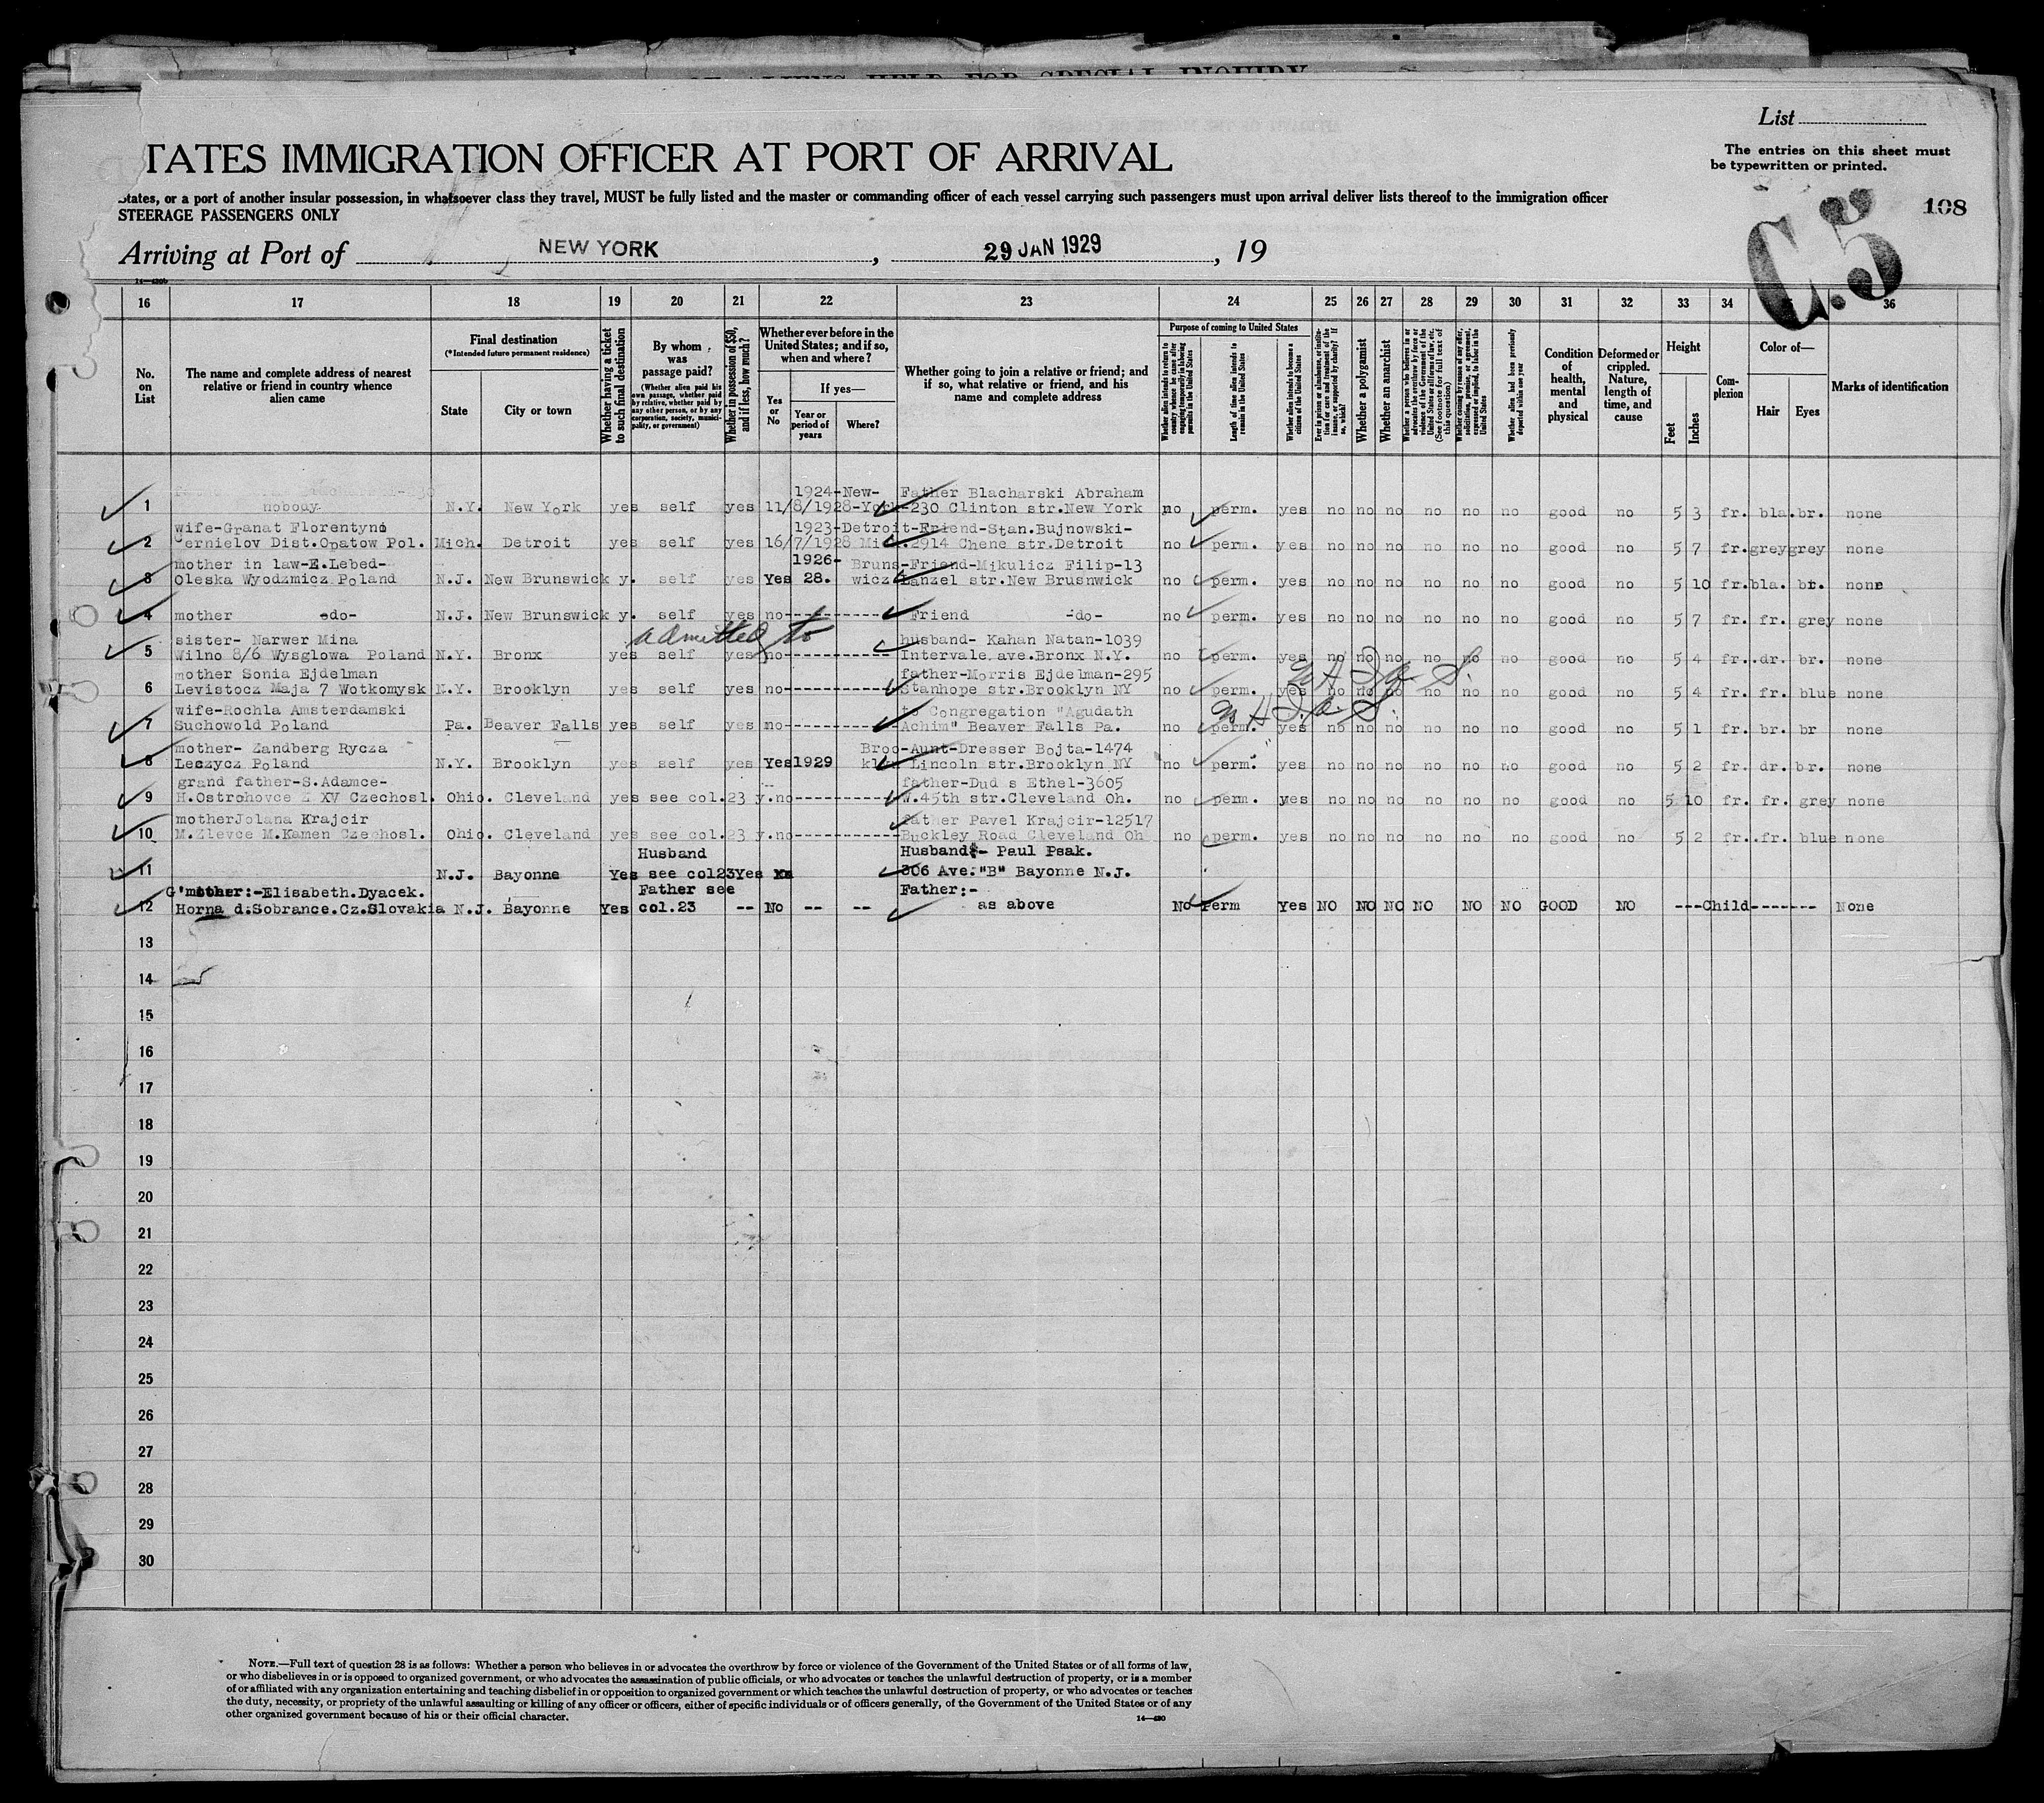 OF ALIENS HELD FOR SPECIAL INQUIRY
List
TATES IMMIGRATION OFFICER AT PORT OF ARRIVAL
The entries on this sheet must
be typewritten or printed.
States, or a port of another insular possession, in whatsoever class they travel, MUST be fully listed and the master or commanding officer of each vessel carrying such passengers must upon arrival deliver lists thereof to the immigration officer
STEERAGE PASSENGERS ONLY
C.5
108
Arriving at Port of NEW YORK, 29 JAN 1929, 19
16 17 18 19 20 21 22 23 24 25 26 27 28 29 30 31 32 33 34 36
No. on List
The name and complete address of nearest relative or friend in country whence alien came
Final destination
(*Intended future permanent residence)
State
City or town
Whether having a ticket to such final destination
By whom was passage paid?
(Whether alien paid his own passage, whether paid by relative, whether paid by any other person, or by any corporation, society, municipality, or government)
Whether in possession of $50, and if less, how much?
Whether ever before in the United States; and if so, when and where?
Yes or No
If yes—
Year or period of years
Where?
Whether going to join a relative or friend; and if so, what relative or friend, and his name and complete address
Purpose of coming to United States
Whether alien intends to return to country whence he came after engaging temporarily in laboring pursuits in the United States
Length of time alien intends to remain in the United States
Whether alien intends to become a citizen of the United States
Ever in prison or almshouse, or institution for care and treatment of the insane, or supported by charity? If so, which?
Whether a polygamist
Whether an anarchist
Whether a person who believes in or advocates the overthrow by force or violence of the Government of the United States or all forms of law, etc. (See footnote for full text of this question)
Whether coming by reason of any offer, solicitation, promise, or agreement, expressed or implied, to labor in the United States
Whether alien had been previously deported within one year
Condition of health, mental and physical
Deformed or crippled. Nature, length of time, and cause
Height
Feet
Inches
Complexion
Color of—
Hair
Eyes
Marks of identification
1924-New- Father Blacharski Abraham
1 nobody N.Y. New York yes self yes 11/8/1928-York-230 Clinton str.New York no perm. yes no no no no no no good no 5 3 fr. bla. br. none
wife-Granat Florentyna 1923-Detroit-Friend-Stan.Bujnowski-
2 ernielov Dist.Opatow Pol. Mich. Detroit yes self yes 16/7/1928 Mi .2914 Chene str.Detroit no perm. yes no no no no no no good no 5 7 fr. grey grey none
mother in law-E.Lebed- 1926- Bruns-Friend-Mikulicz Filip-13
3 Oleska Wyodzmicz Poland N.J. New Brunswick y. self yes Yes 28. wicz Hanzel str.New Brusnwick no perm. yes no no no no no no good no 5 10 fr. bla. br. none
4 mother -do- N.J. New Brunswick y. self yes no---------- Friend -do- no perm. yes no no no no no no good no 5 7 fr. fr. grey none
admitted to
sister- Narwer Mina husband- Kahan Natan-1039
5 Wilno 8/6 Wysglowa Poland N.Y. Bronx yes self yes no---------- Intervale.ave.Bronx N.Y. no perm. yes no no no no no no good no 5 4 fr. dr. br. none
mother Sonia Ejdelman father-Morris Ejdelman-295
H I A S.
6 Levistocz Maja 7 Wotkomysk N.Y. Brooklyn yes self yes no---------- Stanhope str.Brooklyn NY no perm. yes no no no no no no good no 5 4 fr. fr. blue none
wife-Rochla Amsterdamski to Congregation "Agudath
H.I.A.S.
7 Suchowold Poland Pa. Beaver Falls yes self yes no---------- Achim" Beaver Falls Pa. no perm. yes no no no no no no good no 5 1 fr. br. br none
mother- Zandberg Rycza Broo-Aunt-Dresser Bojta-1474
8 Leczycz Poland N.Y. Brooklyn yes self yes Yes 1929 klyn Lincoln str.Brooklyn NY no perm. yes no no no no no no good no 5 2 fr. dr. br. none
grand father-S.Adamce- father-Dud s Ethel-3605
9 H.Ostrohovce XV Czechosl. Ohio. Cleveland yes see col.23 y. no---------- W.45th str.Cleveland Oh. no perm. yes no no no no no no good no 5 10 fr. fr. grey none
motherJolana Krajcir father Pavel Krajcir-12517
10 M.Zlevce M.Kamen Czechosl. Ohio. Cleveland yes see col.23 y. no---------- Buckley Road Cleveland Oh no perm. yes no no no no no no good no 5 2 fr. fr. blue none
Husband Husband:- Paul Psak.
11 N.J. Bayonne Yes see col23 Yes 306 Ave."B" Bayonne N.J.
G'mother:-Elisabeth.Dyacek. Father see Father:-
12 Horna d.Sobrance.Cz.Slovakia N.J. Bayonne Yes col.23 -- No -- -- as above No Perm Yes NO NO NO NO NO NO GOOD NO ---Child------- None
13
14
15
16
17
18
19
20
21
22
23
24
25
26
27
28
29
30
NOTE.—Full text of question 28 is as follows: Whether a person who believes in or advocates the overthrow by force or violence of the Government of the United States or of all forms of law,
or who disbelieves in or is opposed to organized government, or who advocates the assassination of public officials, or who advocates or teaches the unlawful destruction of property, or is a member
of or affiliated with any organization entertaining and teaching disbelief in or opposition to organized government or which teaches the unlawful destruction of property, or who advocates or teaches
the duty, necessity, or propriety of the unlawful assaulting or killing of any officer or officers, either of specific individuals or of officers generally, of the Government of the United States or of any
other organized government because of his or their official character.
14—430